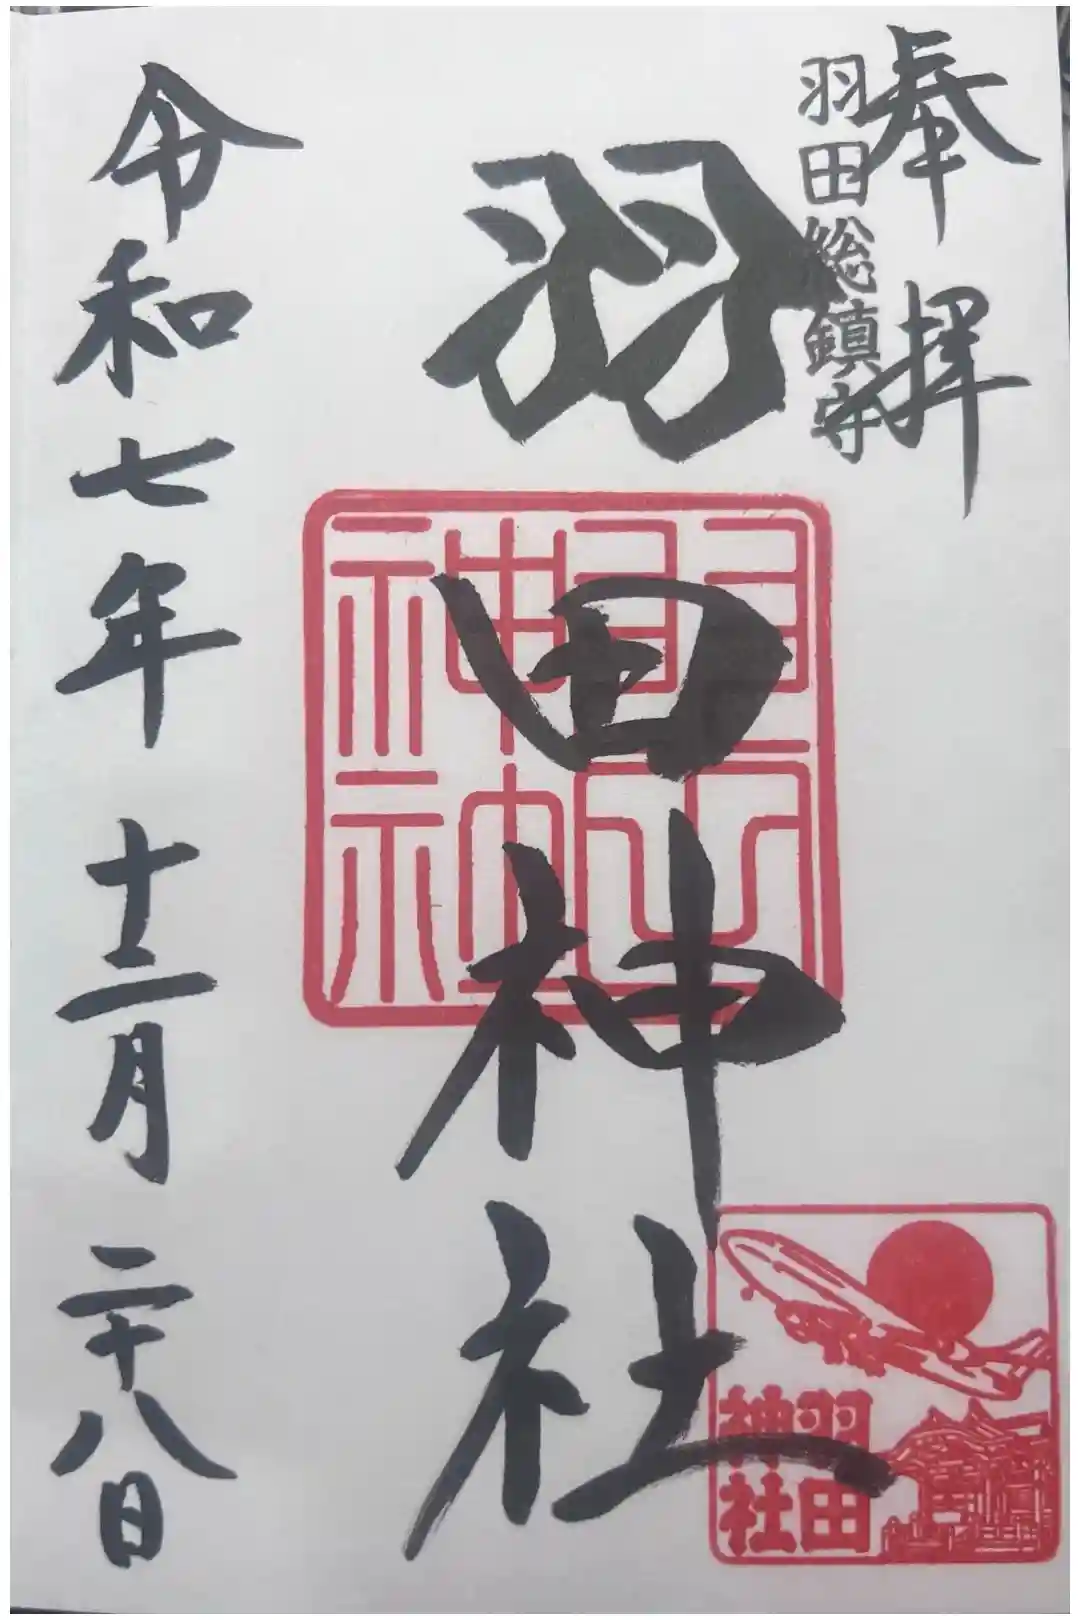 奉拝
羽田総鎮守
羽田神社
羽田神社
羽田
神社
令和七年十二月二十八日